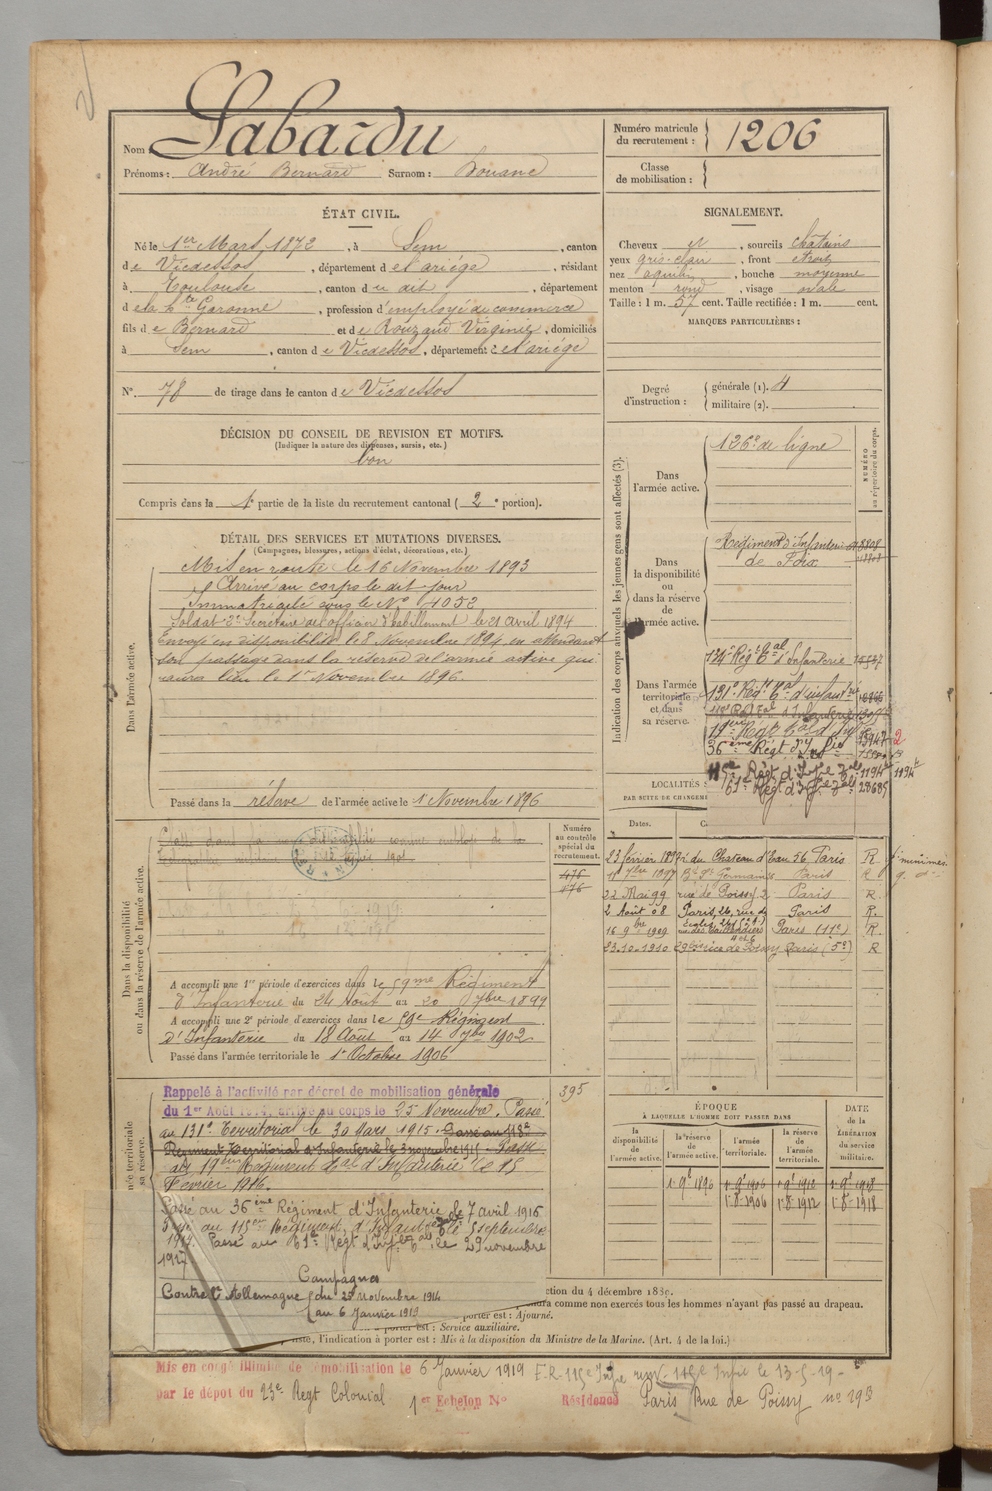 Nom : Labardu
Prénoms : André Bernard Surnom : Douane
Numéro matricule du recrutement : 1206
Classe de mobilisation :
ÉTAT CIVIL.
Né le 1er Mars 1872, à Sem, canton
de Vicdessos, département de l'ariège, résidant
à Toulouse, canton du dit, département
de la hte Garonne, profession d'employé de commerce
fils de Bernard et de Rouzaud Virginie, domiciliés
à Sem, canton de Vicdessos, département de l'ariège
N° 78 de tirage dans le canton de Vicdessos
DÉCISION DU CONSEIL DE REVISION ET MOTIFS.
(Indiquer la nature des dispenses, sursis, etc.)
bon
Compris dans la 1e partie de la liste du recrutement cantonal (2e portion).
SIGNALEMENT.
Cheveux et, sourcils châtains
yeux gris-clair, front étroit
nez aquilin, bouche moyenne
menton rond, visage ovale
Taille : 1 m. 57 cent. Taille rectifiée : 1 m. cent.
MARQUES PARTICULIÈRES :
Degré d'instruction : générale (1). 4
militaire (2).
DÉTAIL DES SERVICES ET MUTATIONS DIVERSES.
(Campagnes, blessures, actions d'éclat, décorations, etc.)
Dans l'armée active.
Mis en route le 16 Novembre 1893
Arrivé au corps le dit jour
Immatriculé sous le N° 4052
Soldat 2e Secrétaire de l'officier d'habillement le 21 avril 1894
Envoyé en disponibilité le 8 Novembre 1894 en attendant
son passage dans la réserve de l'armée active qui
aura lieu le 1er Novembre 1896.
Passé dans la réserve de l'armée active le 1 Novembre 1896
Indication des corps auxquels les jeunes gens sont affectés (3).
NUMÉRO au répertoire du corps.
Dans l'armée active.
126e de ligne
Dans la disponibilité ou dans la réserve de l'armée active.
Régiment d'Infanterie
de Foix
Dans l'armée territoriale et dans sa réserve.
134e Régt tal d'Infanterie
131e Régt tal d'infantrie
118e Rgt tal d'Infanterie
19ème Régt tal d'Inf
36ème Régt
115e Régt d'Infie tale 1194
61e Régt d'Infie tale 23685
LOCALITÉS
PAR SUITE DE CHANGEM
Dates.
23 février 1897 r. du Chateau d'Eau 56, Paris R
Bd St Germain Paris R
22 Mai 99 rue de Poissy 2 Paris R
2 Août 08 Paris, 26, rue des Paris R.
16 9bre 1909 Paris (11e) R
23-10-1910 Paris (5e) R
Dans la disponibilité ou dans la réserve de l'armée active.
Numéro au contrôle spécial du recrutement.
476
476
A accompli une 1re période d'exercices dans le 59me Régiment
d'Infanterie du 24 Août au 20 7bre 1899
A accompli une 2e période d'exercices dans le 59e Régiment
d'Infanterie du 18 Août au 14 7bre 1902
Passé dans l'armée territoriale le 1er Octobre 1906
Rappelé à l'activité par décret de mobilisation générale
du 1er Août 1914, arrivé au corps le 25 Novembre. Passé
au 131e Territorial le 30 Mars 1915. Passé au 118e
Régiment Territorial d'Infanterie le 3 novembre 1915. Passé
au 19ème Régiment tal d'Infanterie le 15
Février 1916.
Passé au 36ème Régiment d'Infanterie le 7 avril 1916
Passé au 115e Régiment d'Infanterie le 5 septembre
1917. Passé au 61e Régt d'Infie tale le 29 novembre
1917
Campagnes
Contre l'Allemagne du 25 novembre 1914
au 6 Janvier 1919
395
ÉPOQUE À LAQUELLE L'HOMME DOIT PASSER DANS
DATE de la LIBÉRATION du service militaire.
la disponibilité de l'armée active.
la réserve de l'armée active.
l'armée territoriale.
la réserve de l'armée territoriale.
1-9bre 1896 1-9bre 1906 1-9bre 1912 1-9bre 1918
1-8-1906 1-8-1912 1-8-1918
ction du 4 décembre 1889.
comme non exercés tous les hommes n'ayant pas passé au drapeau.
porter est : Ajourné.
porter est : Service auxiliaire.
l'indication à porter est : Mis à la disposition du Ministre de la Marine. (Art. 4 de la loi.)
Mis en congé illimité de démobilisation le 6 Janvier 1919 F.R. 115e Infie 115e Infie le 13-5-19-
par le dépôt du 23e Régt Colonial 1er Echelon N° Résidence Paris Rue de Poissy n°